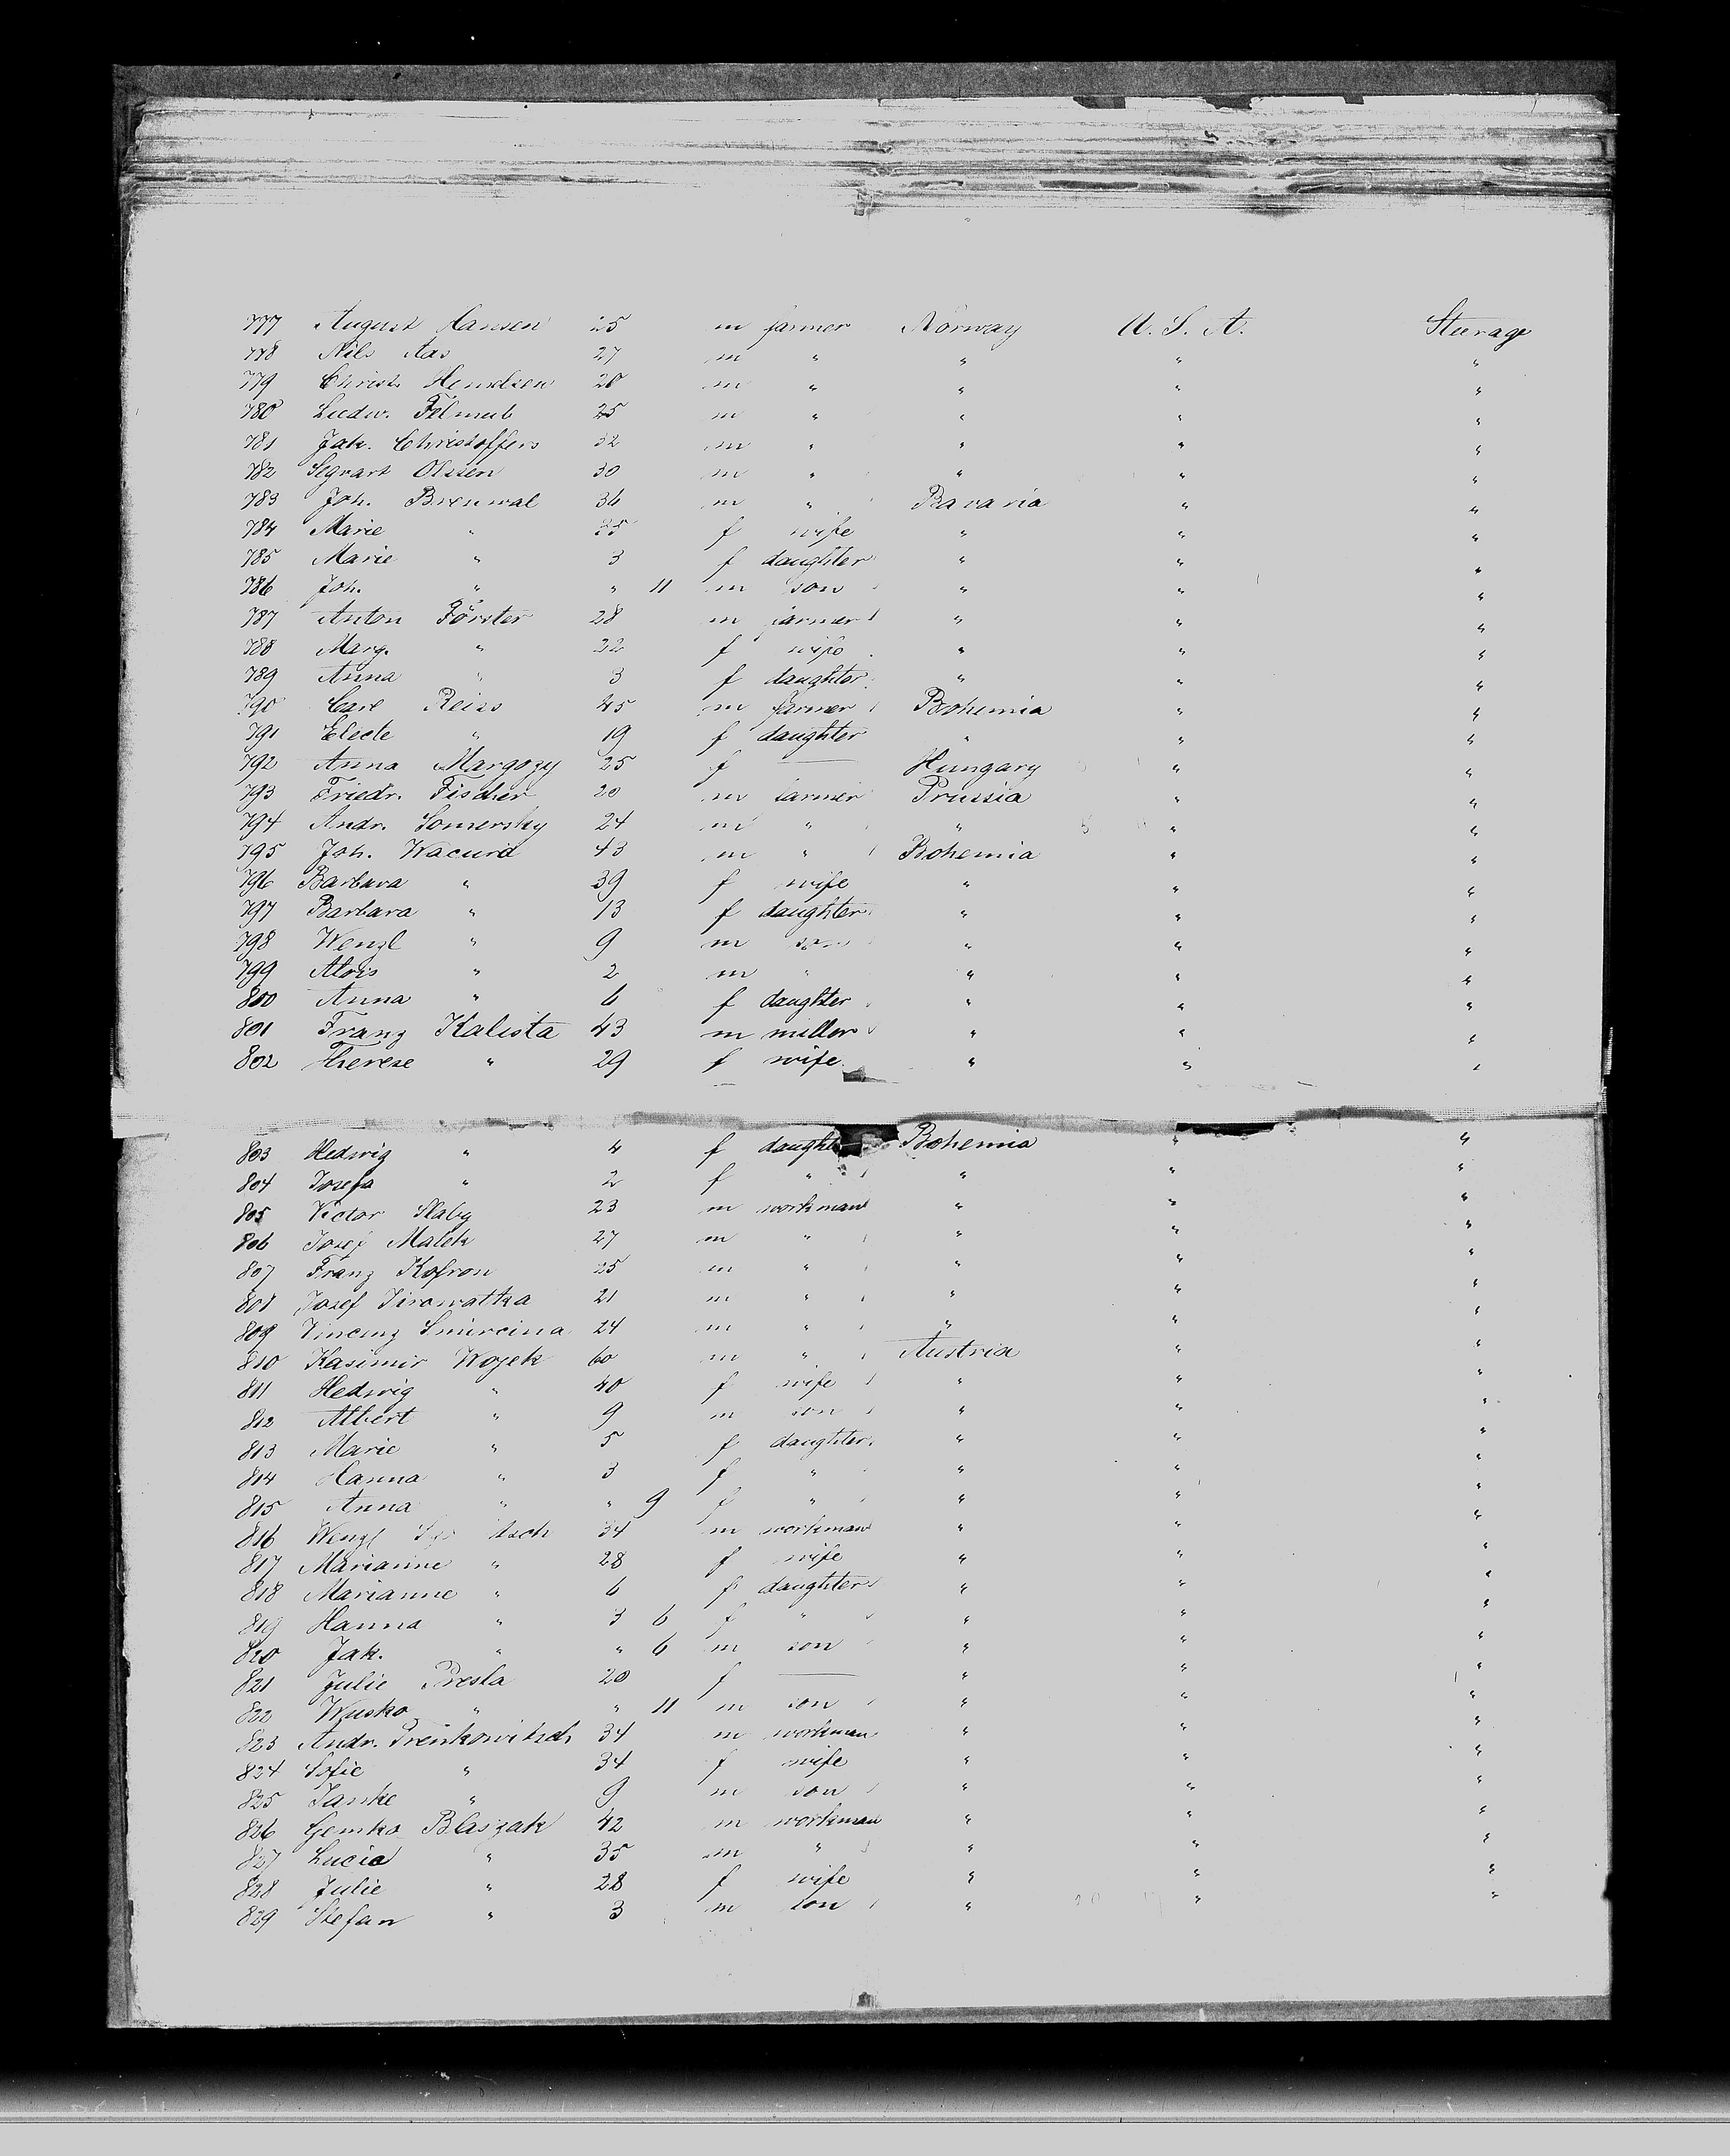 777 August Hansen 25 m farmer Norway U. S. A. Steerage
778 Nils Aas 27 m " " " "
779 Christ. 20 m " " " "
780 Ludw. 25 m " " " "
781 Jak. Christoffers 32 m " " " "
782 Segvart Olssen 30 m " " " "
783 Joh. Brenwal 36 m " Bavaria " "
784 Marie " f wife " " "
785 Marie " 3 f daughter " " "
786 Joh. " " 11 m son " " "
787 Anton Förster 28 m farmer " " "
788 Marg. " 22 f wife " " "
789 Anna " 3 f daughter " " "
790 Carl Reiss 45 m farmer Bohemia " "
791 " 19 f daughter " " "
792 Anna Margozy 25 f — Hungary " "
793 Friedr. Fischer 20 m farmer Prussia " "
794 Andr. Somersky 24 m " " " "
795 Joh. Wacura 43 m " Bohemia " "
796 Barbara " 39 f wife " " "
797 Barbara " 13 f daughter " " "
798 Wenzl " 9 m son " " "
799 Alois " 2 m " " " "
800 Anna " 6 f daughter " " "
801 Franz Kalista 43 m miller " " "
802 Therese " 29 f wife " " "
803 Hedwig " 4 f daught Bohemia " "
804 Josefa " 2 f " " " "
805 Victor Slaby 23 m workman " " "
806 Josef Malek 27 m " " " "
807 Franz Kofron 25 m " " " "
808 Josef Jirowatka 21 m " " " "
809 Vincenz Smircina 24 m " " " "
810 Kasimir Woyek 60 m " Austria " "
811 Hedwig " 40 f wife " " "
812 Albert " 9 m son " " "
813 Marie " 5 f daughter " " "
814 Hanna " 3 f " " " "
815 Anna " " 9 f " " " "
816 Wenzl 34 m workman " " "
817 Marianne " 28 f wife " " "
818 Marianne " 6 f daughter " " "
819 Hanna " 3 6 f " " " "
820 Jak. " " 6 m son " " "
821 Julie Presla 20 f — " " "
822 Wusko " " 11 m son " " "
823 Andr. Prenkowitsch 34 m workman " " "
824 Sofie " 34 f wife " " "
825 Janke " 9 m son " " "
826 Gemko Blaszak 42 m workman " " "
827 Lucia " 35 m " " " "
828 Julie " 28 f wife " " "
829 Stefan " 3 m son " " "